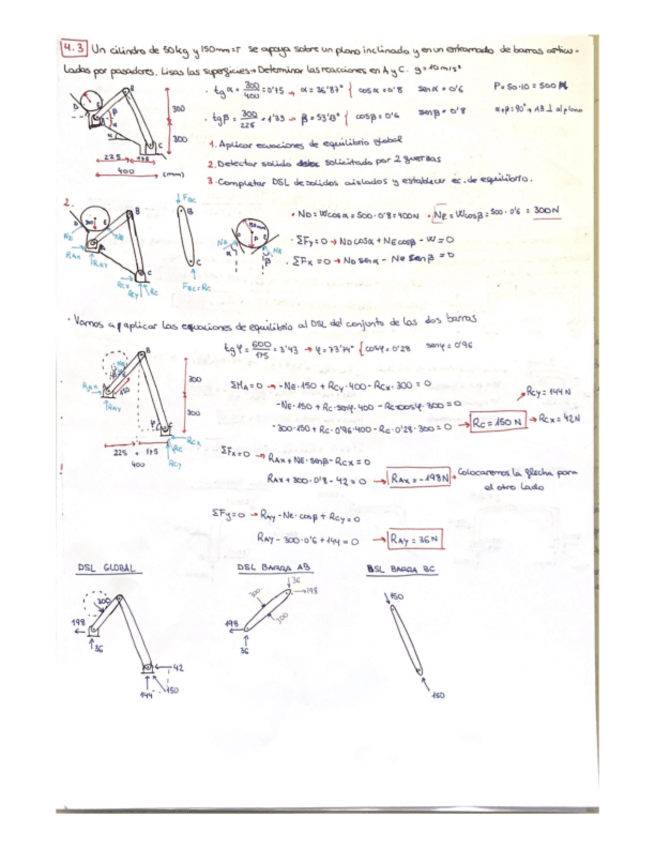 4.3 Un cilindro de 50kg y 150mm=r se apoya sobre un plano inclinado y en un entramado de barras articu-
ladas por pasadores. Lisas las superficies → Determinar las reacciones en A y C. g=10m/s²
· tgα = 300/400 = 0'75 → α = 36'87° { cosα = 0'8 senα = 0'6 P = 50·10 = 500 N
· tgβ = 300/225 = 1'33 → β = 53'13° { cosβ = 0'6 senβ = 0'8 α+β = 90° → AB ⊥ al plano
1. Aplicar ecuaciones de equilibrio global
2. Detectar solido solicitado por 2 fuerzas
3. Completar DSL de solidos aislados y establecer ec. de equilibrio.
D B 300 300 C
225 175
400 (mm)
2.
· ND = Wcosα = 500·0'8 = 400N · NE = Wcosβ = 500·0'6 = 300N
· ΣFy = 0 → NDcosα + NEcosβ - W = 0
· ΣFx = 0 → NDsenα - NEsenβ = 0
FBC B C FBC = RC
RAX RAY RCX RCY RC
· Vamos a aplicar las ecuaciones de equilibrio al DSL del conjunto de las dos barras
tgφ = 600/175 = 3'43 → φ = 73'74° { cosφ = 0'28 senφ = 0'96
ΣMA = 0 → -NE·150 + RCY·400 - RCX·300 = 0
-NE·150 + RC·senφ·400 - RC·cosφ·300 = 0
-300·150 + RC·0'96·400 - RC·0'28·300 = 0 → RC = 150 N → RCY = 144N → RCX = 42N
B 300 300 RCX RC RCY
225 175
400
ΣFx = 0 → RAX + NE·senβ - RCX = 0
RAX + 300·0'8 - 42 = 0 → RAX = -198N → Colocaremos la flecha para
el otro lado
ΣFy = 0 → RAY - NE·cosβ + RCY = 0
RAY - 300·0'6 + 144 = 0 → RAY = 36N
DSL GLOBAL DSL BARRA AB DSL BARRA BC
300 198 36 42 144 150
36 198 300 300 198 36
150 150